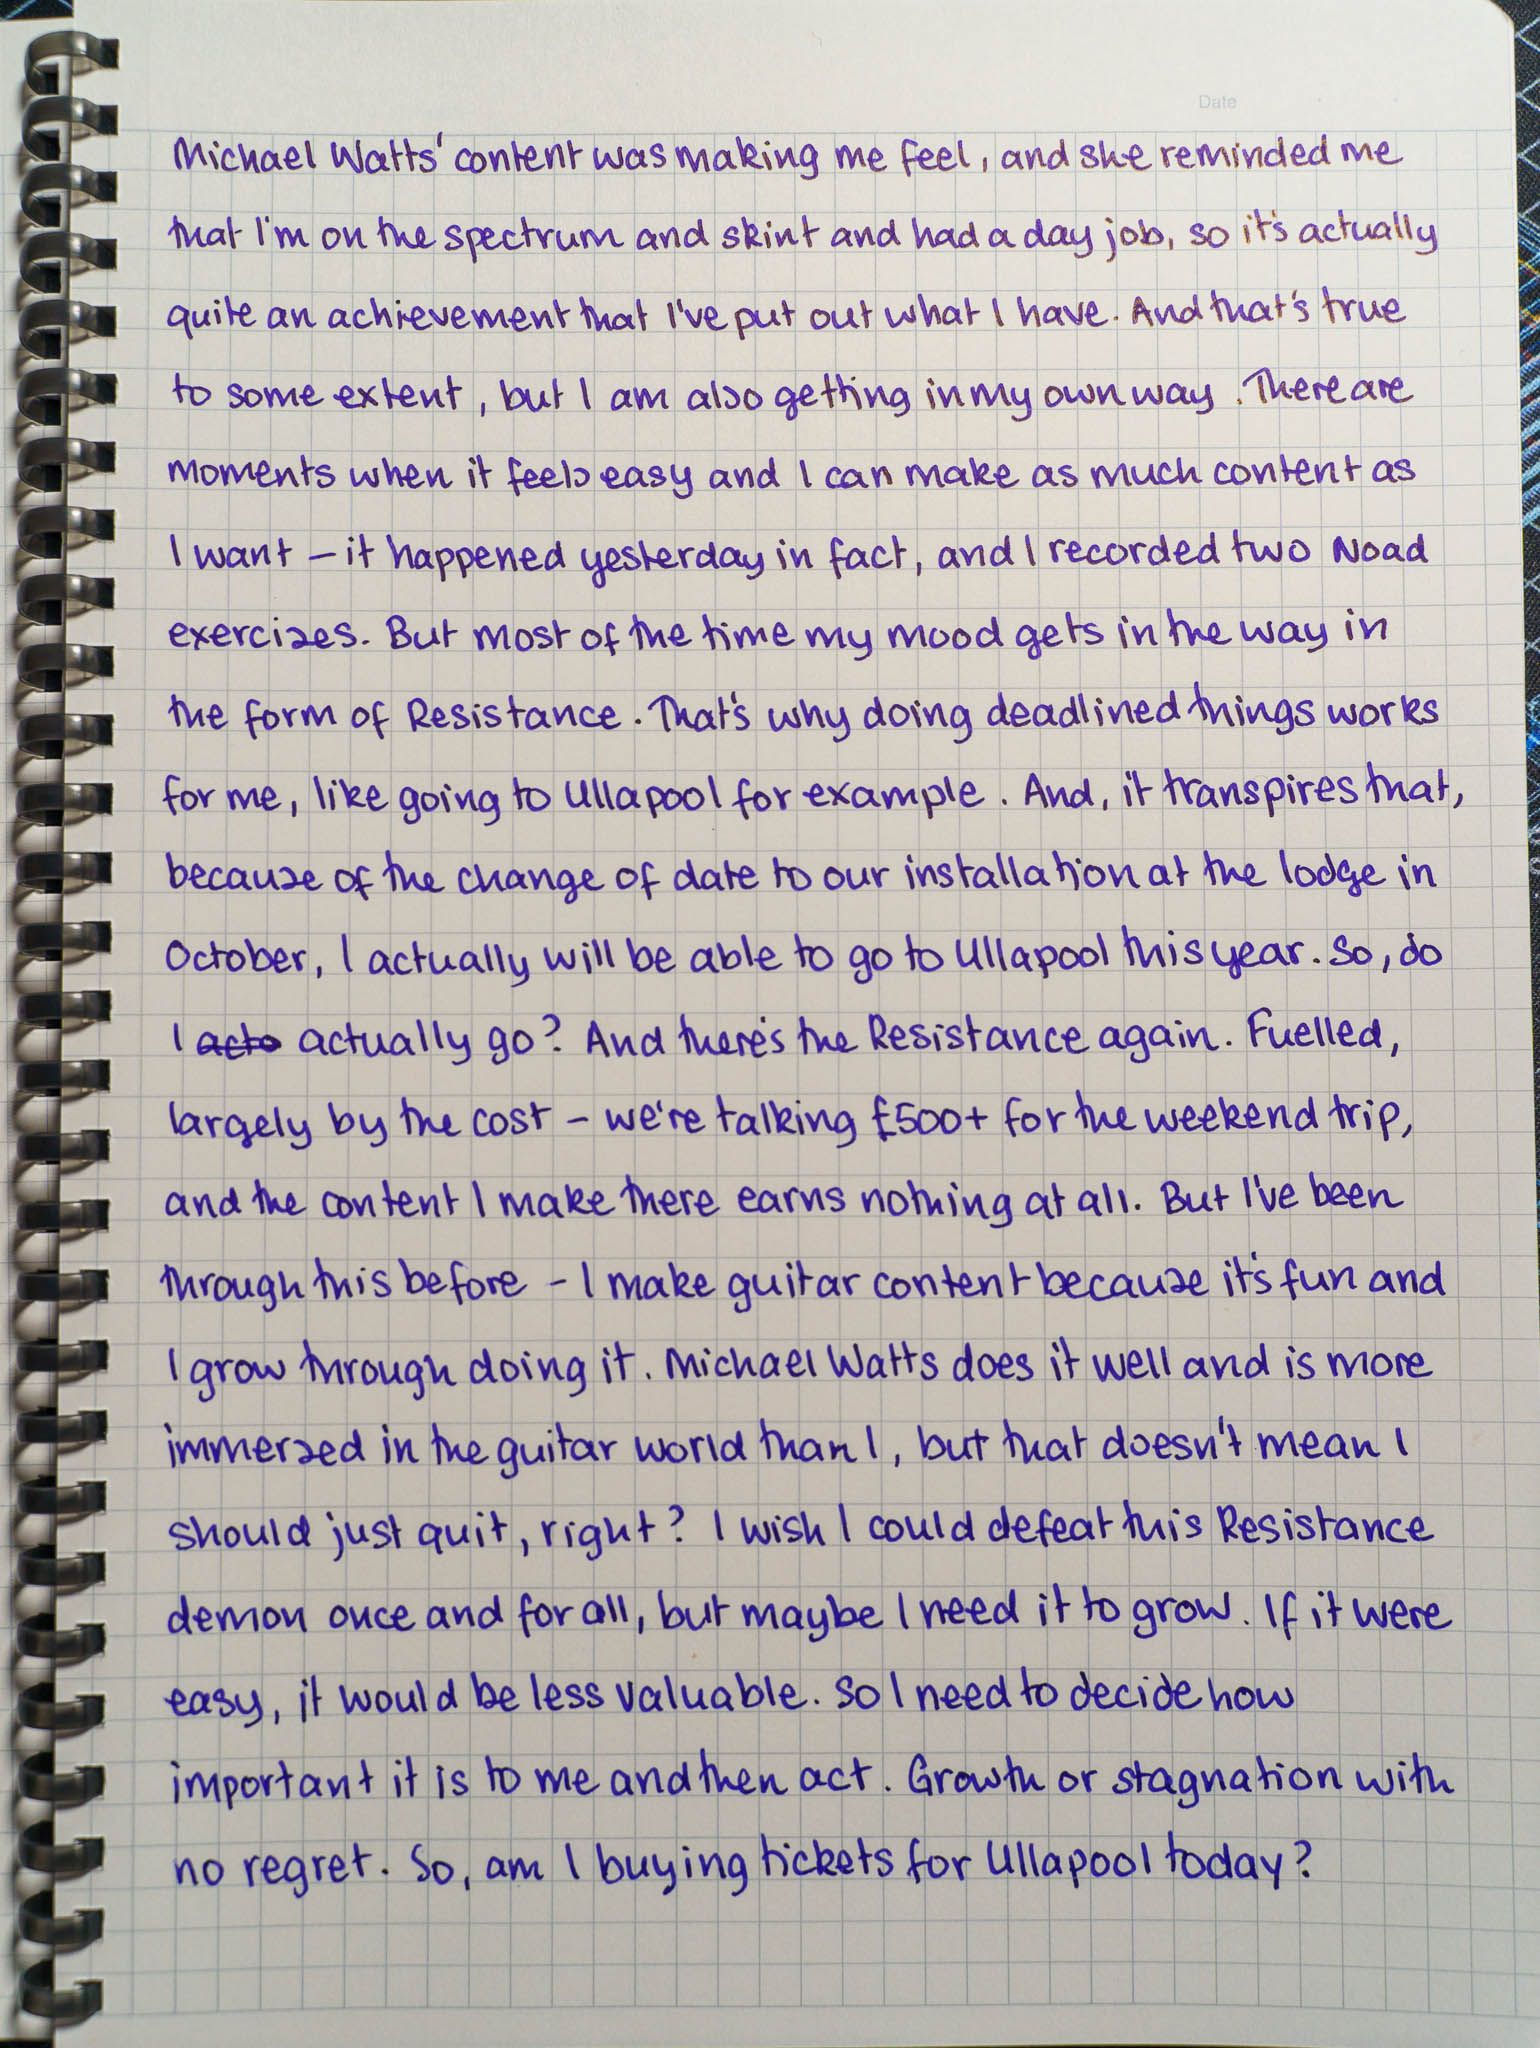 Date
Michael Watts' content was making me feel, and she reminded me
that I'm on the spectrum and skint and had a day job, so it's actually
quite an achievement that I've put out what I have. And that's true
to some extent, but I am also getting in my own way. There are
moments when it feels easy and I can make as much content as
I want – it happened yesterday in fact, and I recorded two Noad
exercises. But most of the time my mood gets in the way in
the form of Resistance. That's why doing deadlined things works
for me, like going to Ullapool for example. And, it transpires that,
because of the change of date to our installation at the lodge in
October, I actually will be able to go to Ullapool this year. So, do
I acto actually go? And there's the Resistance again. Fuelled,
largely by the cost – we're talking £500+ for the weekend trip,
and the content I make there earns nothing at all. But I've been
through this before – I make guitar content because it's fun and
I grow through doing it. Michael Watts does it well and is more
immersed in the guitar world than I, but that doesn't mean I
should just quit, right? I wish I could defeat this Resistance
demon once and for all, but maybe I need it to grow. If it were
easy, it would be less valuable. So I need to decide how
important it is to me and then act. Growth or stagnation with
no regret. So, am I buying tickets for Ullapool today?